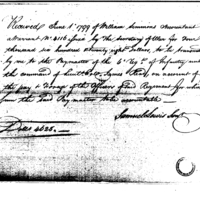 Received June 1st 1799 of William Simmons Accountant
Warrant No. 4116 issued by the Secretary of War for four
thousand six hundred twenty eight Dollars, to be transmitted
by me to the Paymaster of the 6th Regt. of Infantry under
the command of on account of
the pay & forage of the Officers of said Regiment for which
sum the said Paymaster to be accountable
Samuel Lewis Senr
Dolls 4628